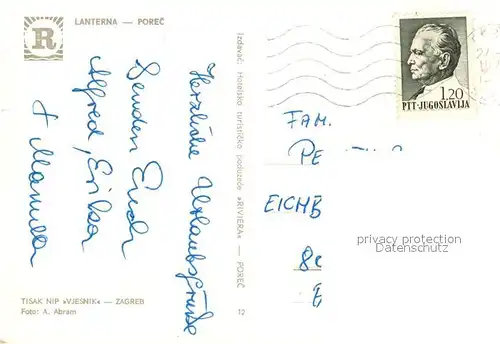 R
LANTERNA — POREČ
Herzliche Urlaubsgrüße
Senden Euch
Alfred, Erika
+ Manuela
TISAK NIP »VJESNIK« — ZAGREB
Foto: A. Abram
12
Izdavač: Hotelsko turističko poduzeće »RIVIERA« — POREČ
1.20
PTT-JUGOSLAVIJA
FAM.
PE
EICHB
8
E
privacy protection
Datenschutz